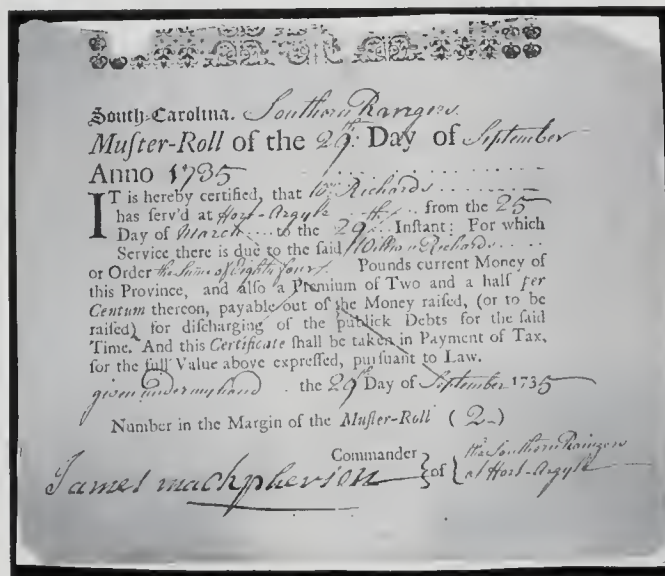 South-Carolina. Southern Rangers.
Muſter-Roll of the 29th. Day of September
Anno 1735
IT is hereby certified, that Wm. Richards
has ſerv'd at Fort-Argyle from the 25th
Day of March to the 29 Inſtant: For which
Service there is due to the ſaid William Richards
or Order the Sume of Eighty four Pounds current Money of
this Province, and alſo a Premium of Two and a half per
Centum thereon, payable out of the Money raiſed, (or to be
raiſed) for diſcharging of the publick Debts for the ſaid
Time. And this Certificate ſhall be taken in Payment of Tax,
for the full Value above expreſſed, purſuant to Law.
given under my hand . the 29th Day of September 1735
Number in the Margin of the Muſter-Roll ( 2 )
Commander of the Southern Raingers
James mackpherson at Fort-Argyle